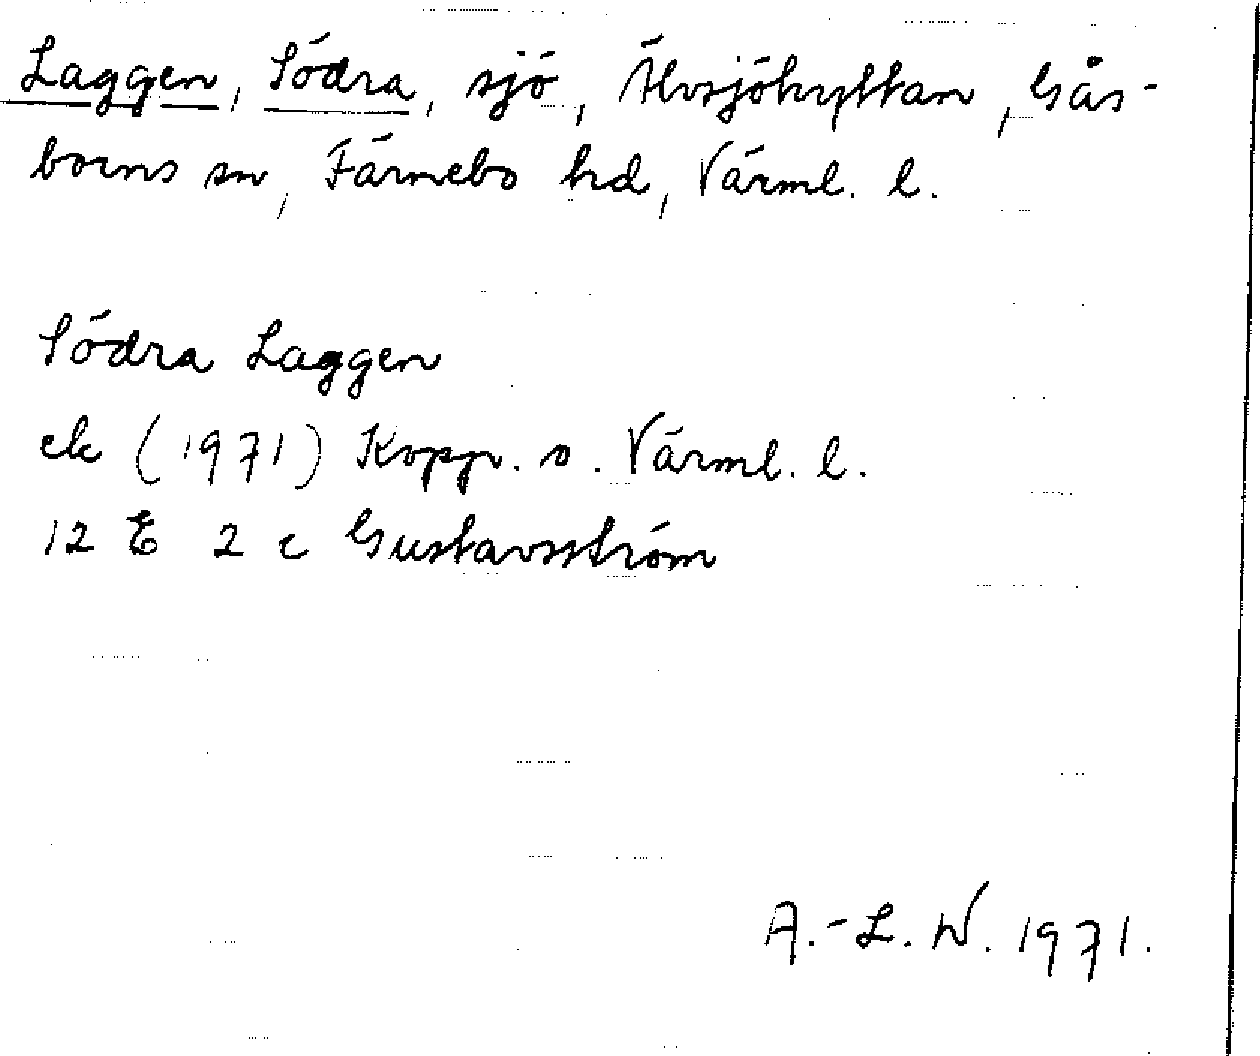 Laggen, Södra, sjö, Älvsjöhyttan, Gås-
borns sn, Färnebo hd, Värml. l.
Södra Laggen
ek (1971) Kopp. o. Värml. l.
12 E 2 c Gustavsström
A.-L. W. 1971.